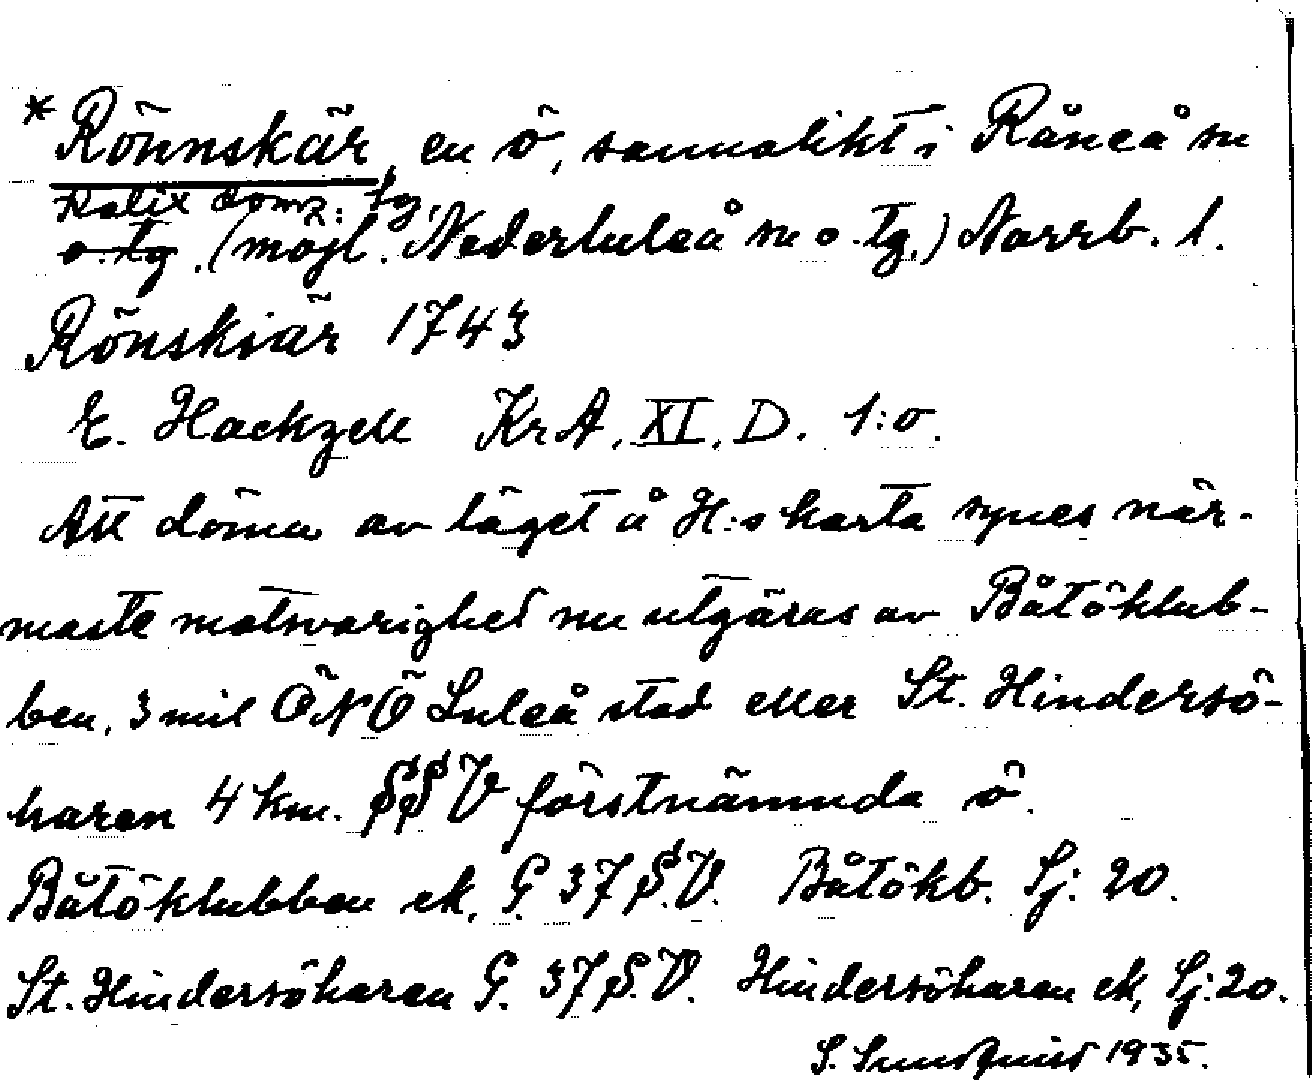 * Rönnskär, en ö, sannolikt i Råneå sn
Kalix domz: tg.
o. tg. (möjl. Nederluleå sn o. tg.) Norrb. l.
Rönskiär 1743
E. Hackzell KrA, XI, D. 1:o.
Att döma av läget å H:s karta synes när-
maste motsvarighet nu utgöras av Båtöklub-
ben, 3 mil ÖNÖ Luleå stad eller St. Hindersö-
haren 4 km. SSV förstnämnda ö.
Båtöklubben ek, G. 37 S.V. Båtökb. Sj: 20.
St. Hindersöharen G. 37 S.V. Hindersöharen ek, Sj: 20.
S. Sundqvist 1935.